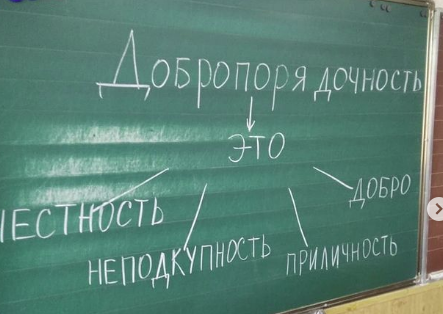 Добропорядочность
ЭТО
ЧЕСТНОСТЬ
НЕПОДКУПНОСТЬ
ПРИЛИЧНОСТЬ
ДОБРО